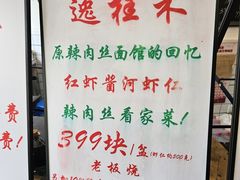 逸桂禾
原辣肉丝面馆的回忆
红虾酱河虾仁
辣肉丝看家菜!
399块/盆(虾仁约500克)
老板烧
费
费!